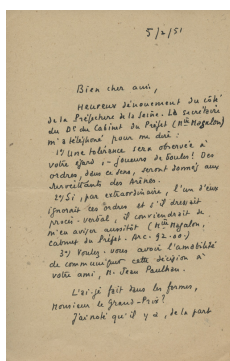 5/2/51
Bien cher ami,
Heureux dénouement du côté
de la Préfecture de la Seine. La secrétaire
du Dr du Cabinet du Préfet (Mlle Magalon)
m'a téléphoné pour me dire :
1º) Une tolérance sera observée à
votre égard, – joueurs de boules ! Des
ordres, dans ce sens, seront donnés aux
surveillants des Arènes.
2º) Si, par extraordinaire, l'un d'eux
ignorait ces ordres et s'il dressait
procès-verbal, il conviendrait de
m'en aviser aussitôt (Mlle Magalon,
Cabinet du Préfet - ARC. 92-00.)
3º) Voulez-vous avoir l'amabilité
de communiquer cette décision à
votre ami, M. Jean Paulhan.
L'ai-je fait dans les formes,
Monsieur le Grand-Prix ?
J'ai noté qu'il y a, de la part